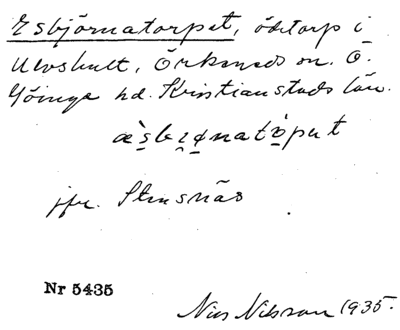 Esbjörnatorpet, ödetorp i
Ulvshult, Örkeneds sn. Ö.
Göinge hd. Kristianstads län.
æ̀sbɪɶnatòput
jfr. Stensnäs
Nr 5435
Nils Nilsson 1935.